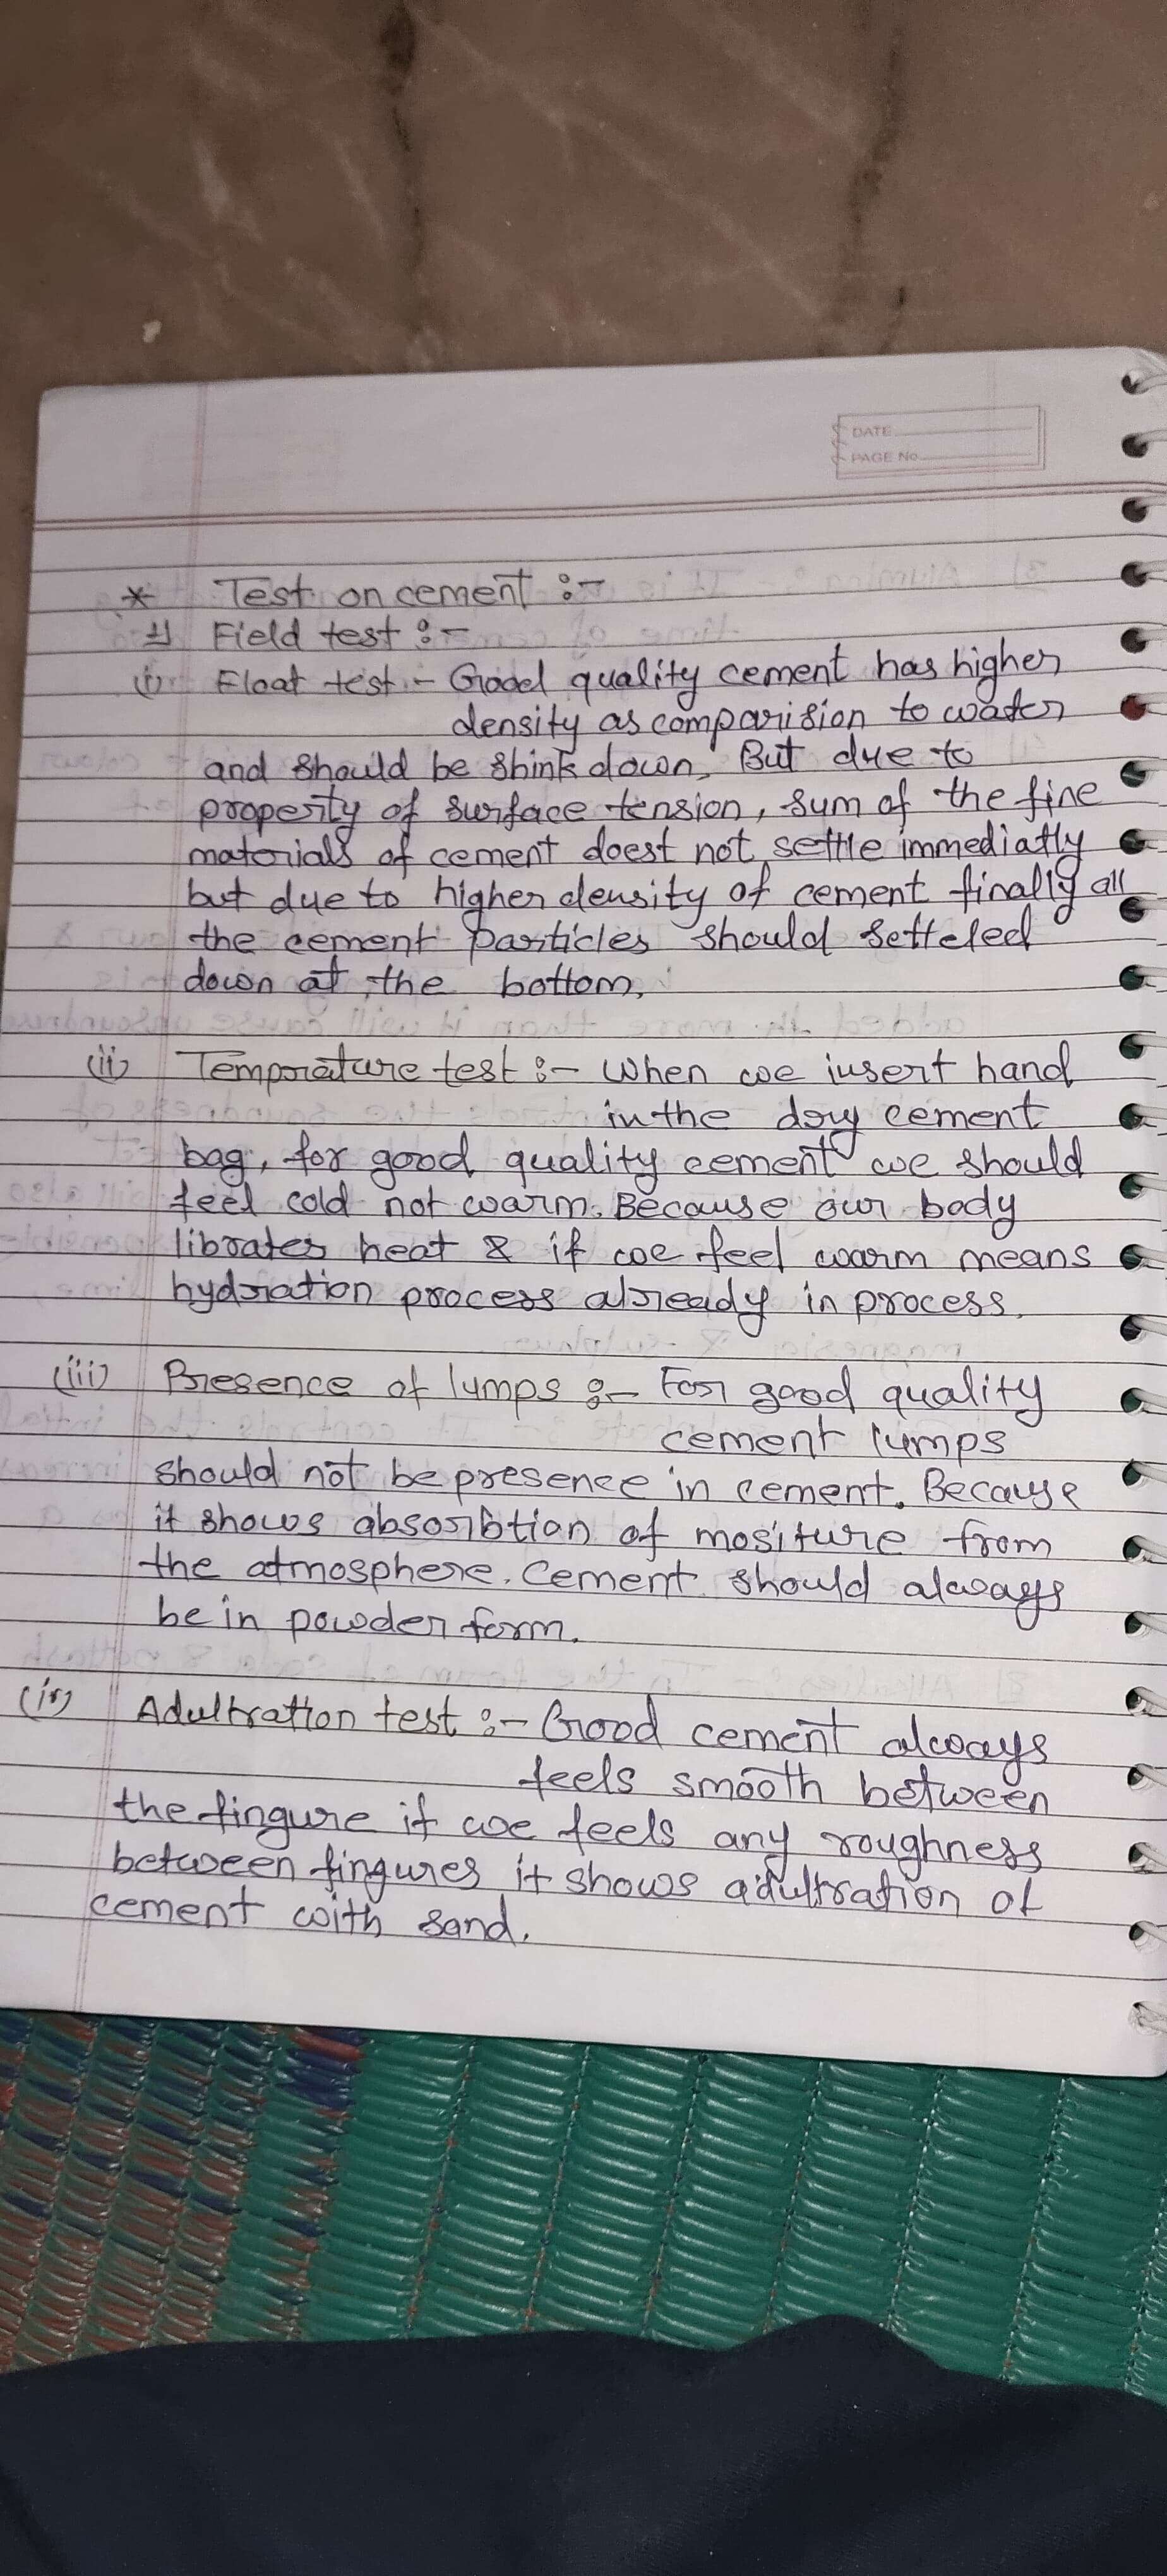 DATE
PAGE No.
* Test on cement :-
1) Field test :-
(i) Float test :- Good quality cement has higher
density as comparision to water
and should be shink down. But due to
property of surface tension, sum of the fine
materials of cement doest not settle immediatly
but due to higher density of cement finally all
the cement particles should setteled
down at the bottom.
(ii) Temprature test :- When we insert hand
in the dry cement
bag, for good quality cement we should
feel cold not warm. Because our body
librates heat & if we feel warm means
hydration process already in process.
(iii) Presence of lumps :- For good quality
cement lumps
should not be presence in cement. Because
it shows absorbtion of mositure from
the atmosphere. Cement should always
be in powder form.
(iv) Adultration test :- Good cement always
feels smooth between
the fingure if we feels any roughness
between fingures it shows adultration of
cement with sand.